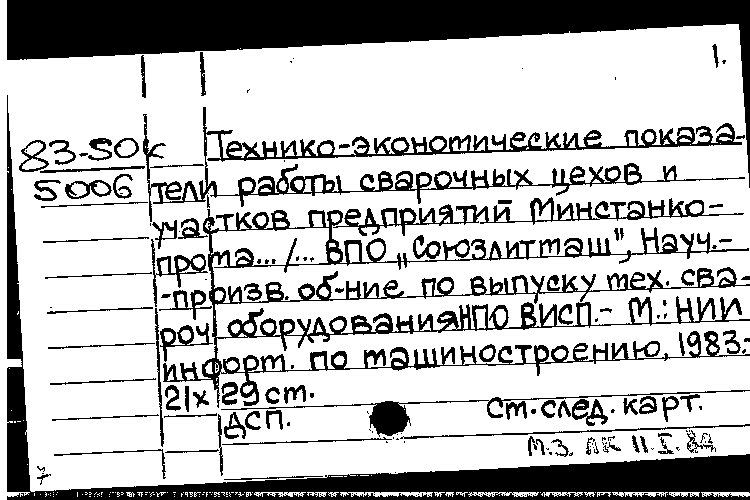 1.
83-50к Технико-экономические показа-
5006 тели работы сварочных цехов и
участков предприятий Минстанко-
прома.../... ВПО „Союзлитмаш", Науч.-
-произв. об-ние по выпуску тех. сва-
роч. оборудования НПО ВИСП.- М.: НИИ
информ. по машиностроению, 1983.-
21x29см.
ДСП. См. след. карт.
М.З. ЛК 11.I.84